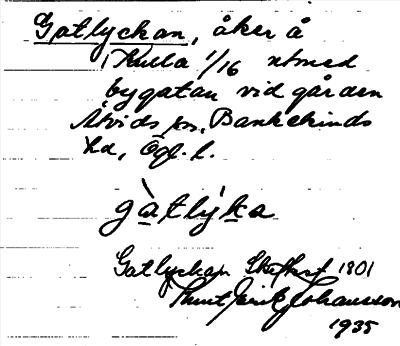 Gatlyckan, åker å
Kulla 1/16 utmed
bygatan vid gården
Åtvids sn, Bankekinds
hd, Ögl. l.
gàtlýka
Gatlyckan Skifteskt 1801
Knut Erik Johansson
1935